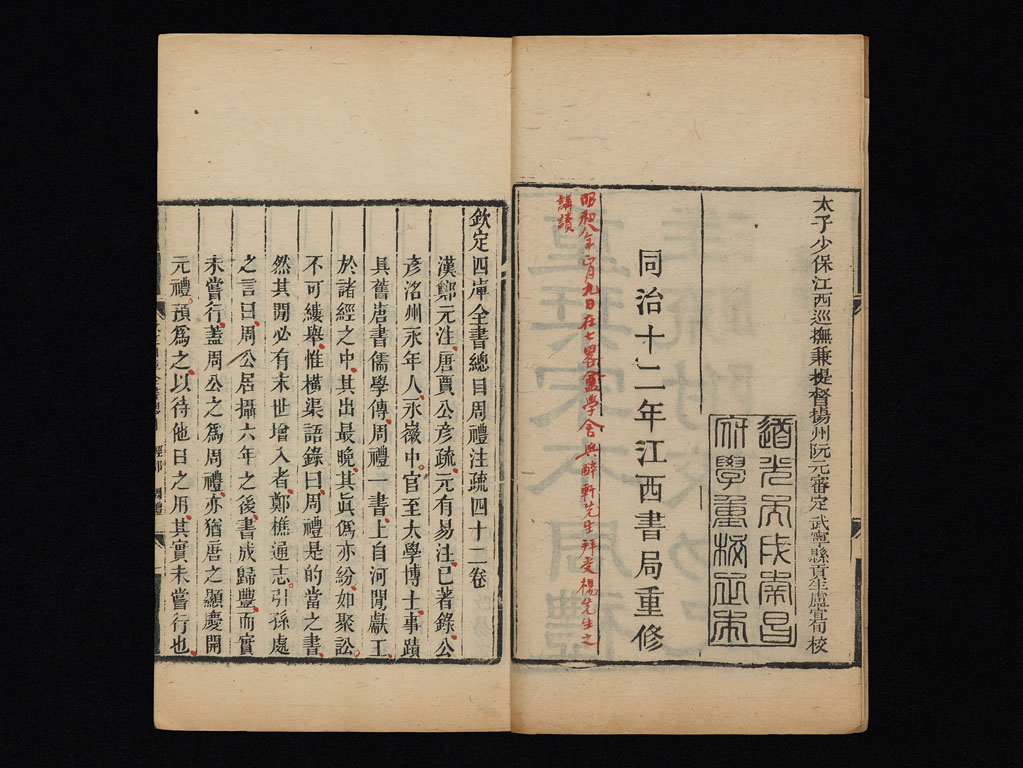 太子少保江西巡撫兼提督揚州阮元審定 武寧縣貢生盧宣旬校
道光丙戌南昌
府學重校正本
同治十二年江西書局重修
昭和八年 月九日在七畧盦學舍與醉軒先生拜受楊先生之
講讀
欽定四庫全書總目周禮注疏四十二卷
漢鄭元注唐賈公彥疏元有易注已著錄公
彥洺州永年人永徽中官至太學博士事蹟
具舊唐書儒學傳周禮一書上自河閒獻王
於諸經之中其出最晚其眞僞亦紛如聚訟
不可縷舉惟橫渠語錄曰周禮是的當之書
然其閒必有末世增入者鄭樵通志引孫處
之言曰周公居攝六年之後書成歸豐而實
未嘗行蓋周公之爲周禮亦猶唐之顯慶開
元禮預爲之以待他日之用其實未嘗行也